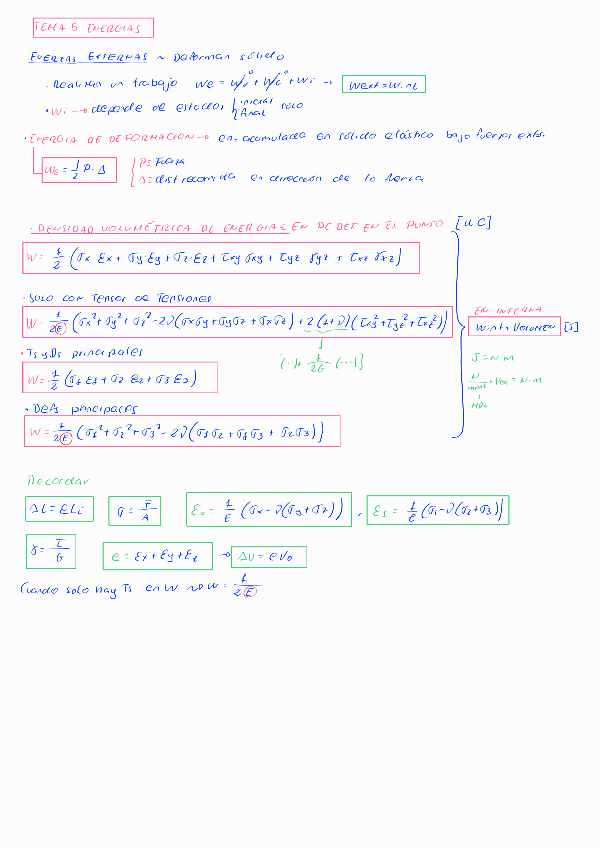 TEMA 5 ENERGIAS
FUERZAS EXTERNAS ~ Deforman sólido
· Realizan un trabajo We = Wv⁰ + Wc⁰ + Wi → Wext = Wint
· Wi → depende de estados { inicial final solo
· ENERGIA DE DEFORMACION → en. acumulada en sólido elástico bajo fuerzas exts.
We = 1/2 P · Δ
P = Fuerza
Δ = dist recorrida en dirección de la fuerza
· DENSIDAD VOLUMÉTRICA DE ENERGIA = EN DE DEF EN ES PUNTO [u C]
W = 1/2 (σx εx + σy·εy + σz·εz + τxy γxy + τyz γyz + τxz γxz)
· SOLO CON TENSOR DE TENSIONES
W = 1/2E (σx² + σy² + σz² - 2ν(σxσy + σyσz + σxσz) + 2(1+ν)(τxy² + τyz² + τxz²))
(...) + 1/2G (...)]
EN INTERNA
Wint = VOLUMEN [J]
J = N·m
N/mm² · Vol = N·m
MPa
· Ts y Ds principales
W = 1/2 (σ1 ε1 + σ2 ε2 + σ3 ε3)
· DEFS principales
W = 1/2E (σ1² + σ2² + σ3² - 2ν(σ1σ2 + σ1σ3 + σ2σ3))
Recordar
ΔL = εLi
σ = F/A
εx = 1/E (σx - ν(σy + σz)) , ε1 = 1/E (σ1 - ν(σ2 + σ3))
γ = τ/G
e = εx + εy + εz → ΔV = eVo
Cuando solo hay Ts en W → W = 1/2E